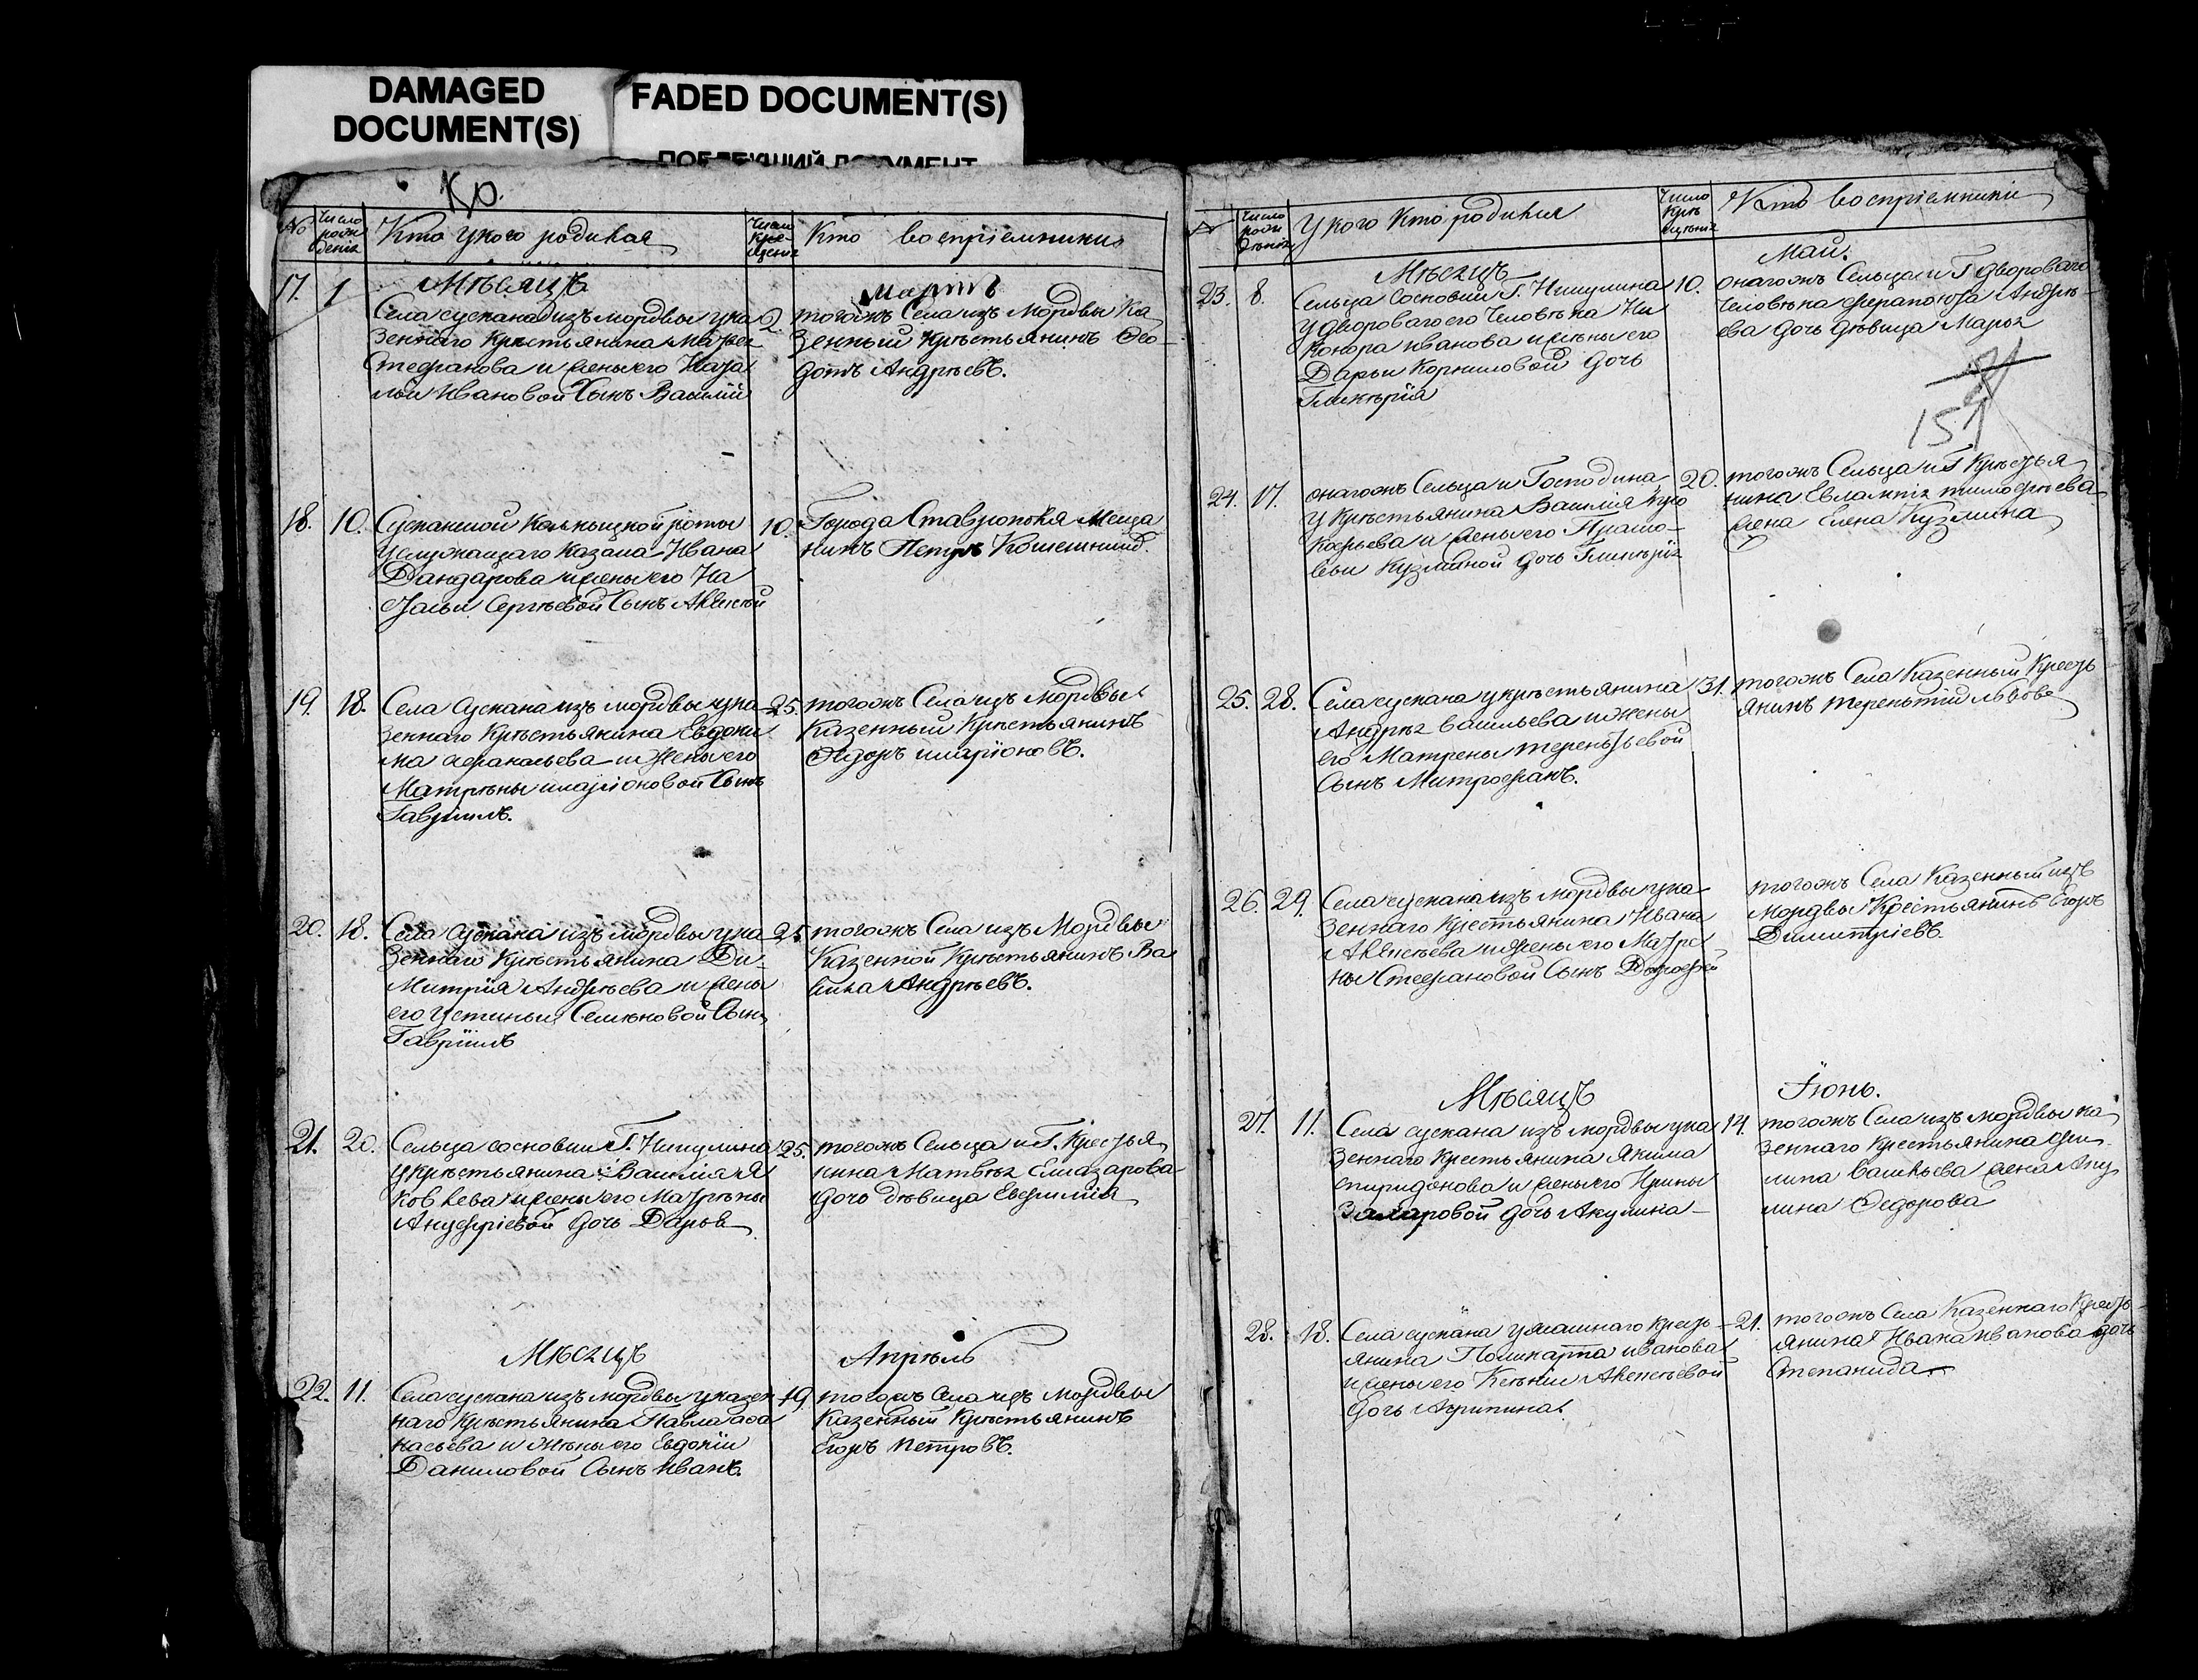 DAMAGED
DOCUMENT(S)
FADED DOCUMENT(S)
Кр.
№
Число рожденія
Кто у кого родился
Число крещенія
Кто воспріемники
Мѣсяцъ
Мартъ
17. 1
Села сускана изъ мордвы у ка
зеннаго крѣстьянина Матвея
Стефанова и жены его Ната
льи Ивановой Сынъ Василій
2.
тогожъ Села изъ Мордвы Ка
зенный крѣстьянинъ Фео
дотъ Андрѣевъ.
18. 10.
Сусканской Калмыцкой роты
у служащаго казака Ивана
Дандарова и жены его На
тальи Сергѣевой Сынъ Алексѣй
10.
Города Ставрополя Меща
нинъ Петръ
19. 18.
Села Сускана изъ мордвы у ка
зеннаго Крѣстьянина Евдоки
ма афанасьева и жены его
Матрены иларіоновой Сынъ
Гавріилъ.
25.
тогожъ Села изъ мордвы
Казенный Крѣстьянинъ
Ѳедоръ иларіоновъ.
20. 18.
Села Сускана изъ мордвы у ка
зеннаго Крѣстьянина Ди
митрія Андрѣева и жены
его Устиньи Семеновой Сынъ
Гавріилъ
25
тогожъ Села изъ Мордвы
Казенной Крѣстьянинъ Ва
Андрѣевъ.
21. 20.
Сельца сосновки Г. Никулина
у крѣстьянина Василія Я
ковлева и жены его Матрены
Ануфріевой дочь Дарья
25.
тогожъ Сельца и Г. Крестья
нина Матвѣя Елизарова
дочь дѣвица Евфимія
Мѣсяцъ
Апрѣль
22. 11.
Села сускана изъ мордвы у казен
наго крѣстьянина Павла афа
насьева и жены его Евдокіи
Даниловой Сынъ иванъ.
19.
тогожъ Села изъ мордвы
казенный крѣстьянинъ
Егоръ петровъ.
№
Число рожденія
У кого кто родился
Число крещенія
Кто воспріемники
Мѣсяцъ
Май.
23. 8.
Сельца Сосновки Г. Никулина
у двороваго его человѣка Ни
канора иванова и жены его
Дарьи Корниловой дочь
Гликерія
10.
онагожъ Сельца и Г двороваго
человѣка ферапонта Андрѣ
ева дочь дѣвица Марья
151
24. 17.
онагожъ Сельца и Господина
у крѣстьянина Василія про
кофьева и жены его Праско
вьи Кузминой дочь Гликерія
20.
тогожъ Сельца и Г Крестья
нина Евлампія тимофѣева
жена Елена Кузмина
25. 28.
Села сускана у крѣстьянина
Андрѣя васильева и жены
его Матрены терентьевой
Сынъ Митрофанъ.
31.
тогожъ Села Казенный Кресть
янинъ терентій львовъ
26. 29.
Села сускана изъ мордвы у ка
зеннаго Крестьянина Ивана
Алексѣева и жены его Матре
ны Стефановой Сынъ Дорофей
тогожъ Села Казенный изъ
Мордвы Крестьянинъ Егоръ
Димитріевъ.
Мѣсяцъ
Іюнь.
27. 11.
Села сускана изъ мордвы у ка
зеннаго крестьянина Якима
спиридонова и жены его Ирины
Захаровой дочь Акулина
14.
тогожъ Села изъ мордвы ка
зеннаго крестьянина фи
липа васильева жена Аку
лина Ѳедорова
28. 18.
Села сускана у ясашнаго кресть
янина Поликарпа иванова
и жены его Ксеніи Алексѣевой
дочь Агрипина.
21.
тогожъ Села Казеннаго Кресть
янина Ивана иванова дочь
Степанида